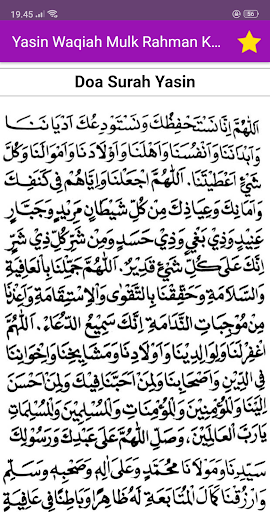 19.45
Yasin Waqiah Mulk Rahman K...
Doa Surah Yasin
اَللّٰهُمَّ اِنَّا نَسْتَحْفِظُكَ وَنَسْتَوْدِعُكَ اَدْيَانَنَا
وَاَبْدَانَنَا وَاَنْفُسَنَا وَاَهْلَنَا وَاَوْلَادَنَا وَاَمْوَالَنَا وَكُلَّ
شَيْءٍ اَعْطَيْتَنَا. اَللّٰهُمَّ اجْعَلْنَا وَاِيَّاهُمْ فِي كَنَفِكَ
وَاَمَانِكَ وَعِيَاذِكَ مِنْ كُلِّ شَيْطَانٍ مَرِيْدٍ وَجَبَّارٍ
عَنِيْدٍ وَذِيْ بَغْيٍ وَذِيْ حَسَدٍ وَمِنْ شَرِّ كُلِّ ذِيْ شَرٍّ
اِنَّكَ عَلَى كُلِّ شَيْءٍ قَدِيْرٌ. اَللّٰهُمَّ جَمِّلْنَا بِالْعَافِيَةِ
وَالسَّلَامَةِ وَحَقِّقْنَا بِالتَّقْوَى وَالْاِسْتِقَامَةِ وَاَعِذْنَا
مِنْ مُوْجِبَاتِ النَّدَامَةِ اِنَّكَ سَمِيْعُ الدُّعَاءِ. اَللّٰهُمَّ
اغْفِرْلَنَا وَلِوَالِدِيْنَا وَاَوْلَادِنَا وَمَشَايِخِنَا وَاِخْوَانِنَا
فِي الدِّيْنِ وَاَصْحَابِنَا وَلِمَنْ اَحَبَّنَا فِيْكَ وَلِمَنْ اَحْسَنَ
اِلَيْنَا وَلِلْمُؤْمِنِيْنَ وَالْمُؤْمِنَاتِ وَالْمُسْلِمِيْنَ وَالْمُسْلِمَاتِ
يَارَبَّ الْعَالَمِيْنَ. وَصَلِّ اللّٰهُمَّ عَلَى عَبْدِكَ وَرَسُوْلِكَ
سَيِّدِنَا وَمَوْلَانَا مُحَمَّدٍ وَعَلَى اٰلِهِ وَصَحْبِهِ وَسَلِّمْ
وَارْزُقْنَا كَمَالَ الْمُتَابَعَةِ لَهُ ظَاهِرًا وَبَاطِنًا فِي عَافِيَةٍ